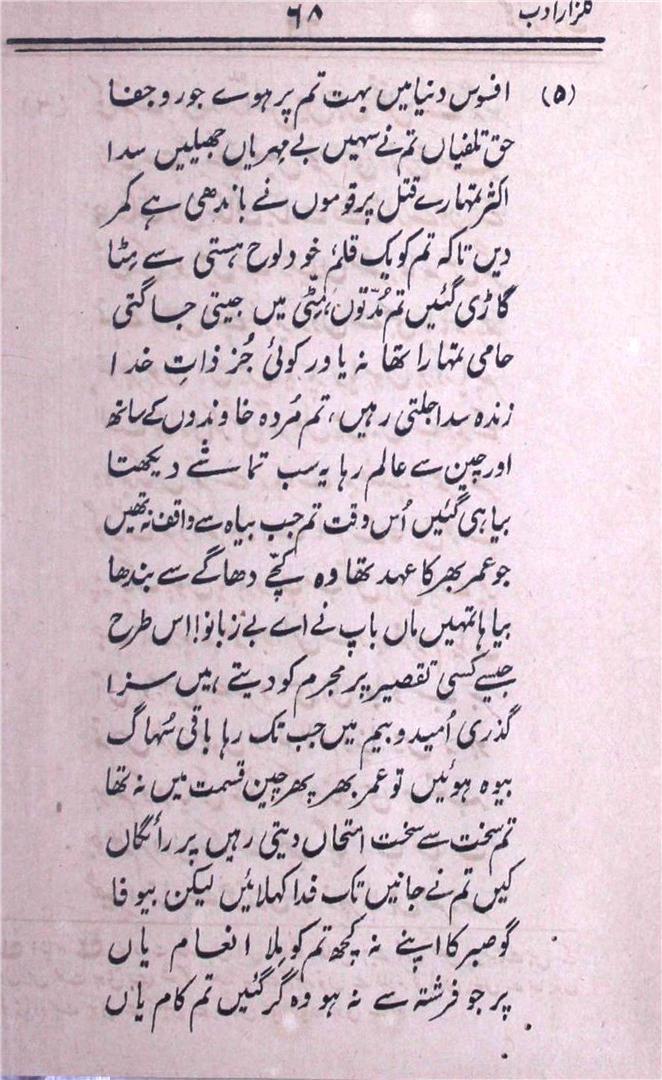 گلزار ادب
۶۸
(۵) افسوس دنیا میں بہت تم پر ہوے جور و جفا
حق تلفیاں تم نے سہیں بے مہریاں جھیلیں سدا
اکثر تمہارے قتل پر قوموں نے باندھی ہے کمر
دیں تاکہ تم کو یک قلم خود لوح ہستی سے مِٹا
گاڑی گئیں تم مُدّتوں، مِٹّی میں جیتی جاگتی
حامی تمہارا تھا نہ یاور کوئی جُز ذاتِ خدا
زندہ سدا جلتی رہیں، تم مُردہ خاوندوں کے ساتھ
اور چین سے عالم رہا یہ سب تماشے دیکھتا
بیاہی گئیں اُس وقت تم جب بیاہ سے واقف نہ تھیں
جو عمر بھر کا عہد تھا وہ کچّے دھاگے سے بندھا
بیاہا تمہیں ماں باپ نے اے بے زبانو! اس طرح
جیسے کسی تقصیر پر مجرم کو دیتے ہیں سزا
گذری اُمید و بیم میں جب تک رہا باقی سُہاگ
بیوہ ہوئیں تو عمر بھر پھر چین قسمت میں نہ تھا
تم سخت سے سخت امتحاں دیتی رہیں پر رائگاں
کیں تم نے جانیں تک فدا کہلائیں لیکن بیوفا
گو صبر کا اپنے نہ کچھ تم کو مِلا انعام یاں
پر جو فرشتہ سے نہ ہو وہ کر گئیں تم کام یاں